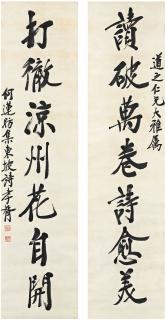 道之仁兄大雅属
讀破萬卷詩愈美
打徹涼州花自開
何蓮舫集東坡詩李